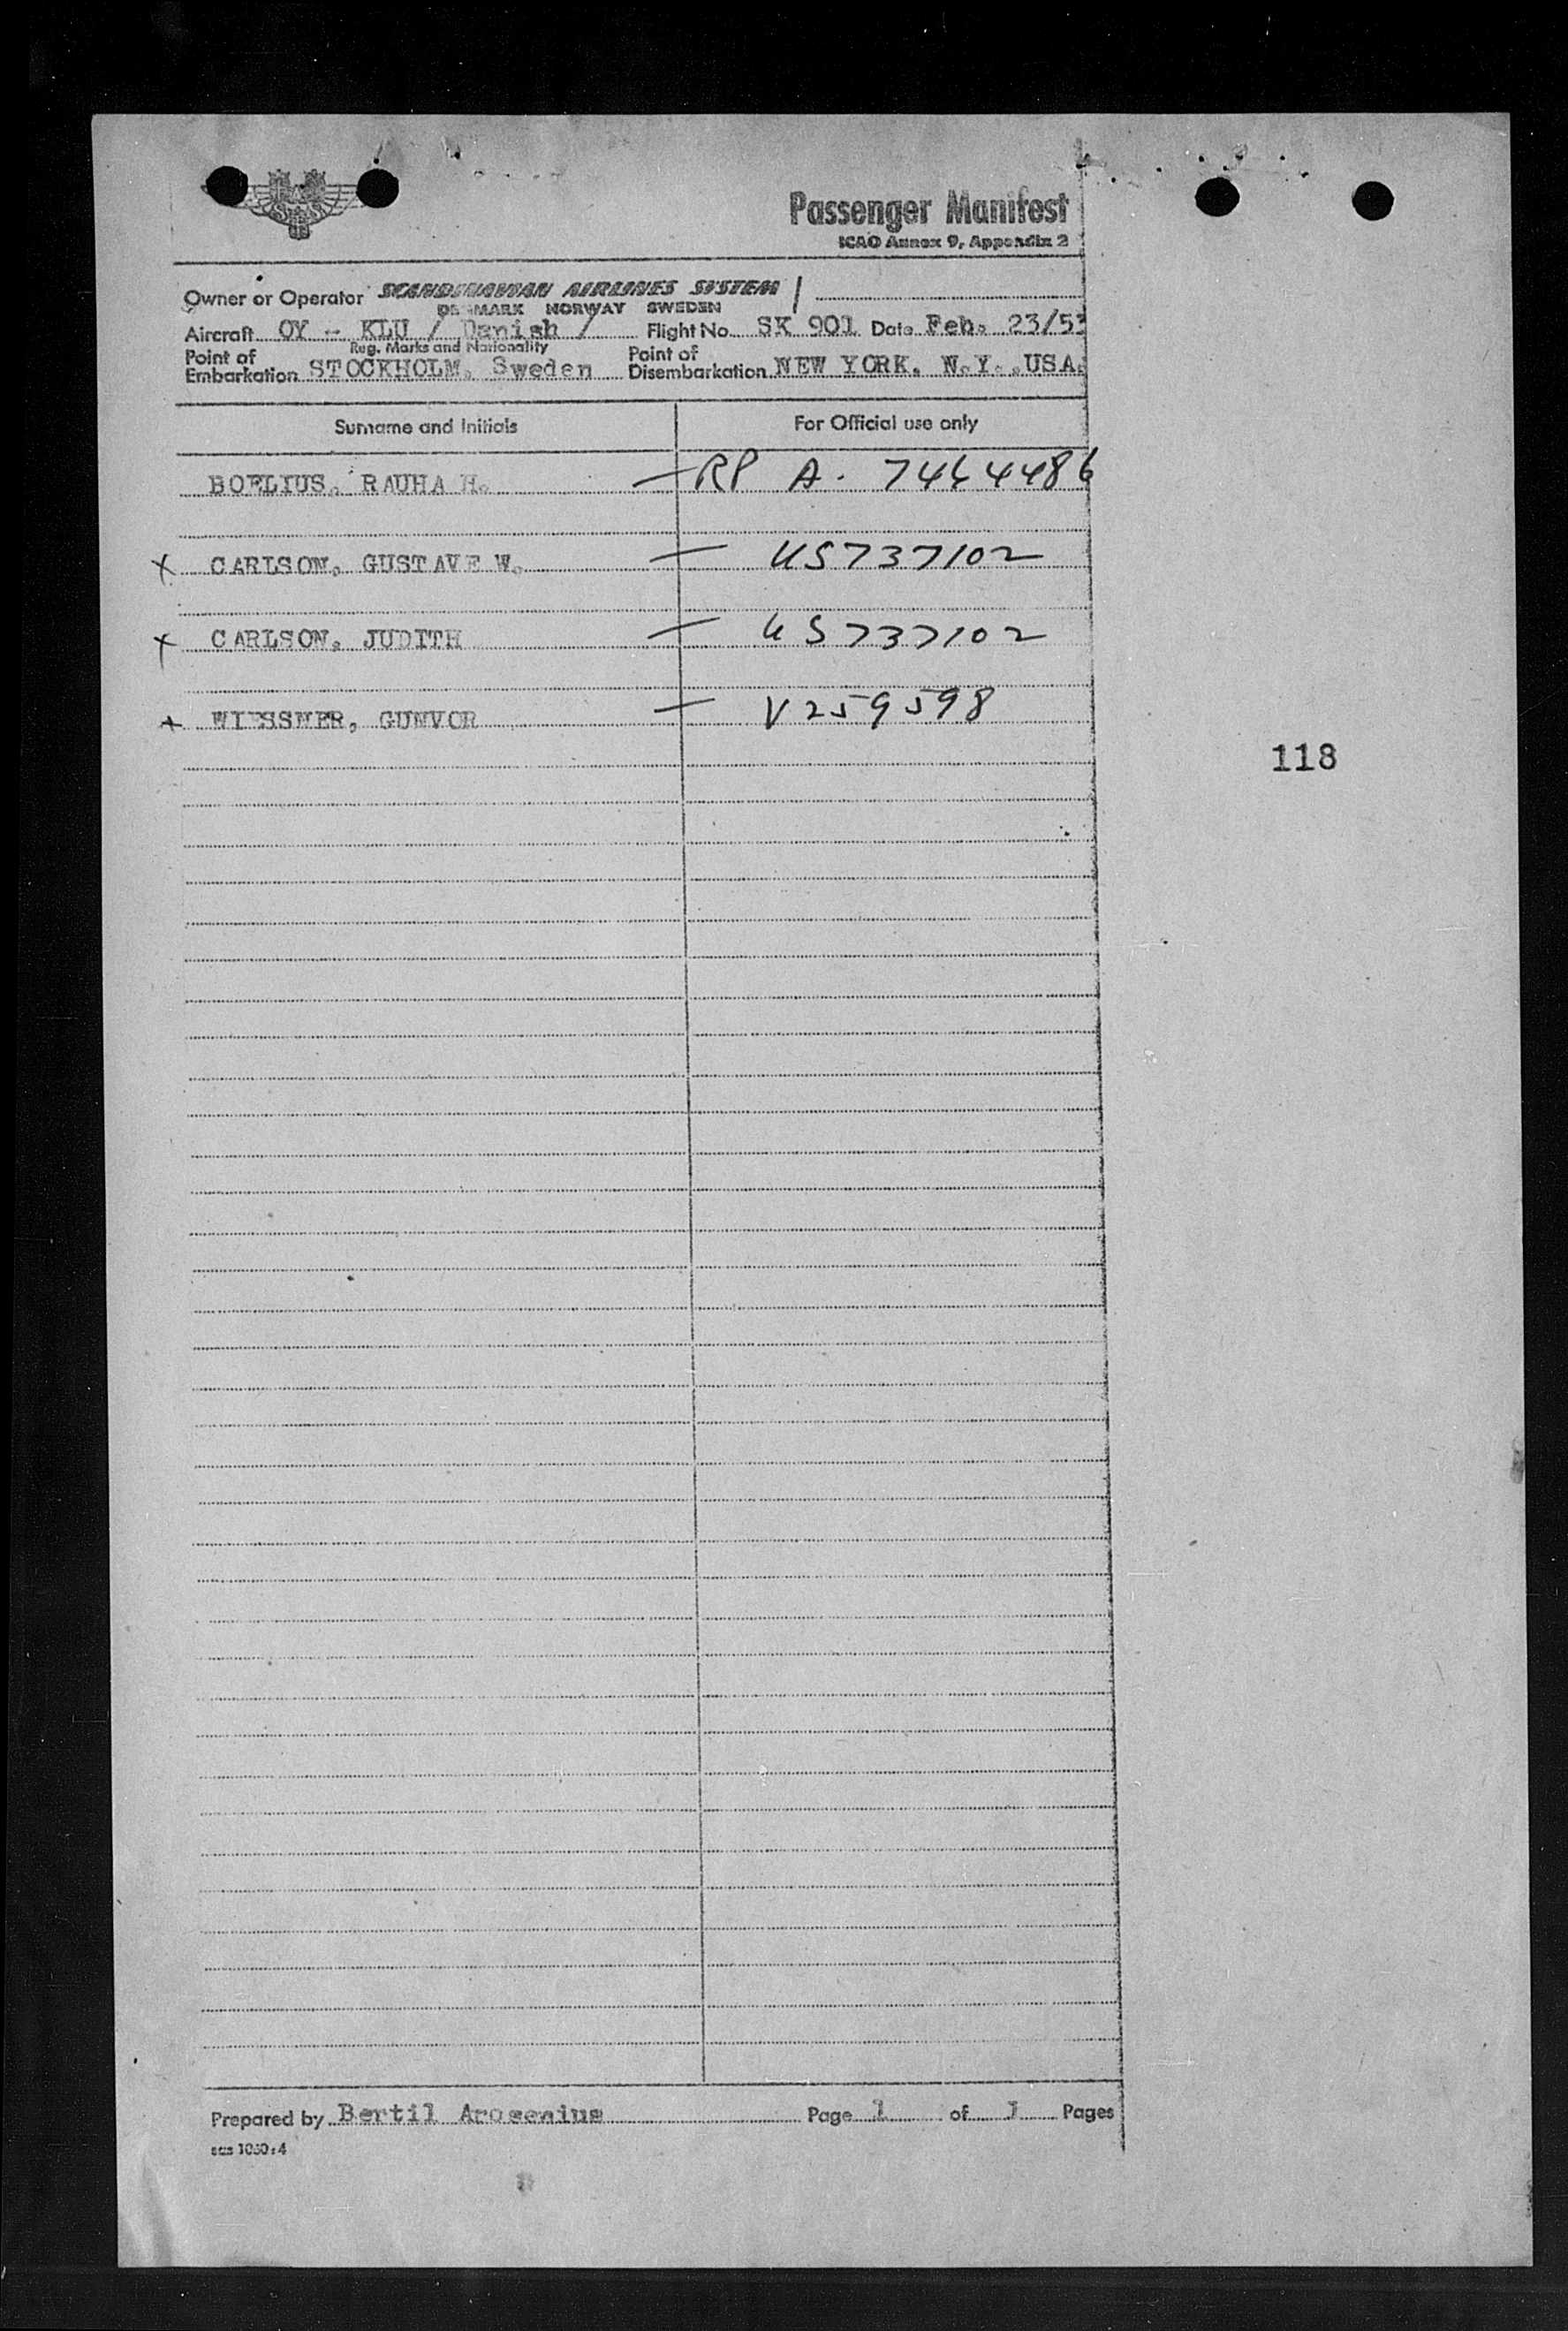 Passenger Manifest
ICAO Annex 9, Appendix 2
Owner or Operator SCANDINAVIAN AIRLINES SYSTEM
DENMARK NORWAY SWEDEN
Aircraft OY - KLU / Danish / Flight No. SK 901 Date Feb. 23/53
Reg. Marks and Nationality
Point of Embarkation STOCKHOLM, Sweden Point of Disembarkation NEW YORK, N.Y., USA.
Surname and Initials For Official use only
BOELIUS, RAUHA H. — RP A. 7464486
X CARLSON, GUSTAVE W. — US737102
X CARLSON, JUDITH — US737102
X WIESSNER, GUNVOR — V259598
118
Prepared by Bertil Arosenius Page 1 of 1 Pages
sas 1050:4